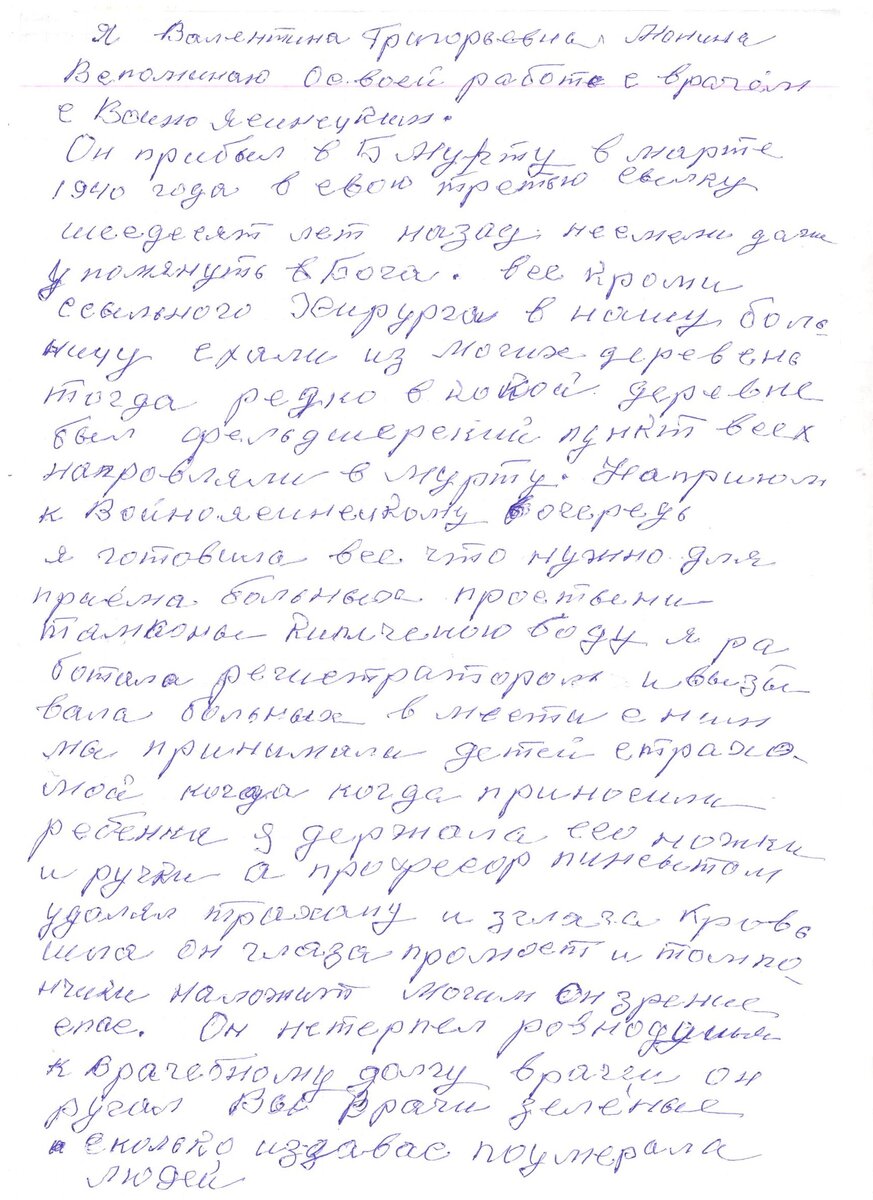 Я Валентина Григорьевна Монина
Вспоминаю о своей работе с врачом
с Войно Ясинецким.
Он прибыл в Б Мурту в марте
1940 года в свою третью сылку
шесдесят лет назад. несмели даже
упомянуть Бога. все кроми
ссыльного Хирурга в нашу боль
ницу ехали из многих деревень
тогда редко в какой деревне
был фельдшерский пункт всех
напровляли в мурту. На прием
к Войноясинецкому очередь
я готовила все что нужно для
приёма больных простыни
тампоны кипиченою воду я ра
ботала регистратором и вызы
вала больных в месте с ним
мы принимали детей страхо-
мой когда когда приносили
ребенка я держала его ножки
и ручки а професор пинсытом
удалял трахому и зглаза кровь
шла он глаза промоет и томпо-
нчики наложит многим он зрение
спас. Он нетерпел ровнодушья
к врачебному долгу врачей он
ругал Вы Врачи зелёные
сколько иззавас поумерала
людей